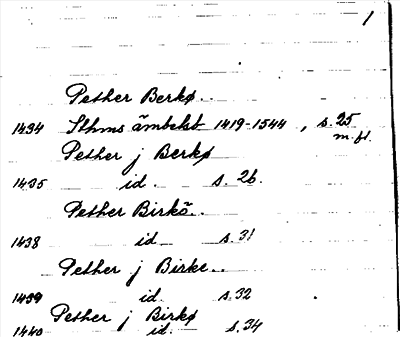 1
Pether Berkø..
1434 Sthms ämbetsb 1419-1544, s. 25
m.fl.
Pether j Berkø
1435 id. s. 26.
Pether Birkö..
1438 id s. 31
Pether j Birke..
1439 id. s. 32
Pether j Birkø
1440 id. s. 34